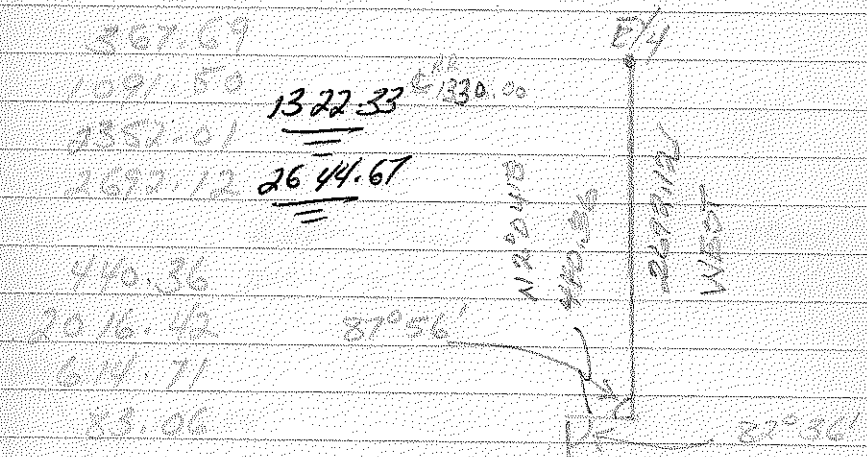 367.69
1091.50
2352.01
2692.12
440.36
2016.42
614.71
83.06
1322.33
1330.00
2644.67
87°56'
E1/4
440.36
2692.12